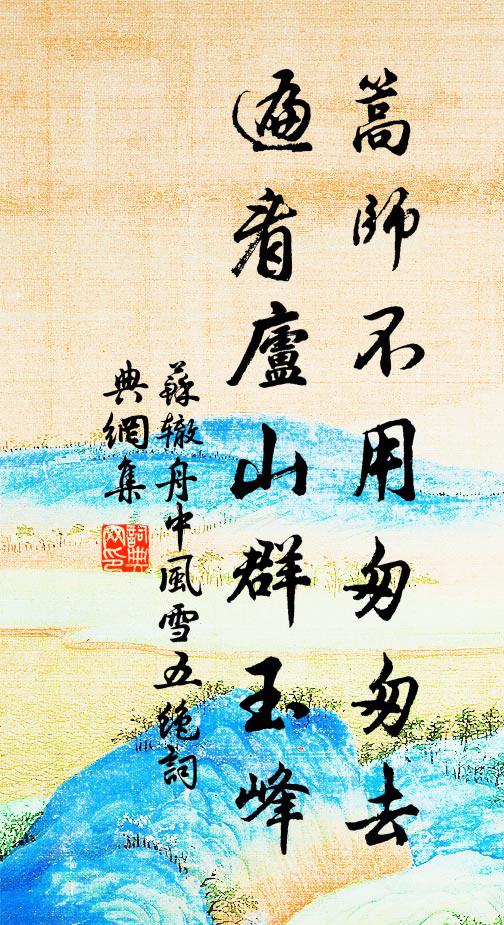 蒿師不用匆匆去
遍看廬山群玉峰
蘇辙舟中風雪五绝詞
典網集
詞典